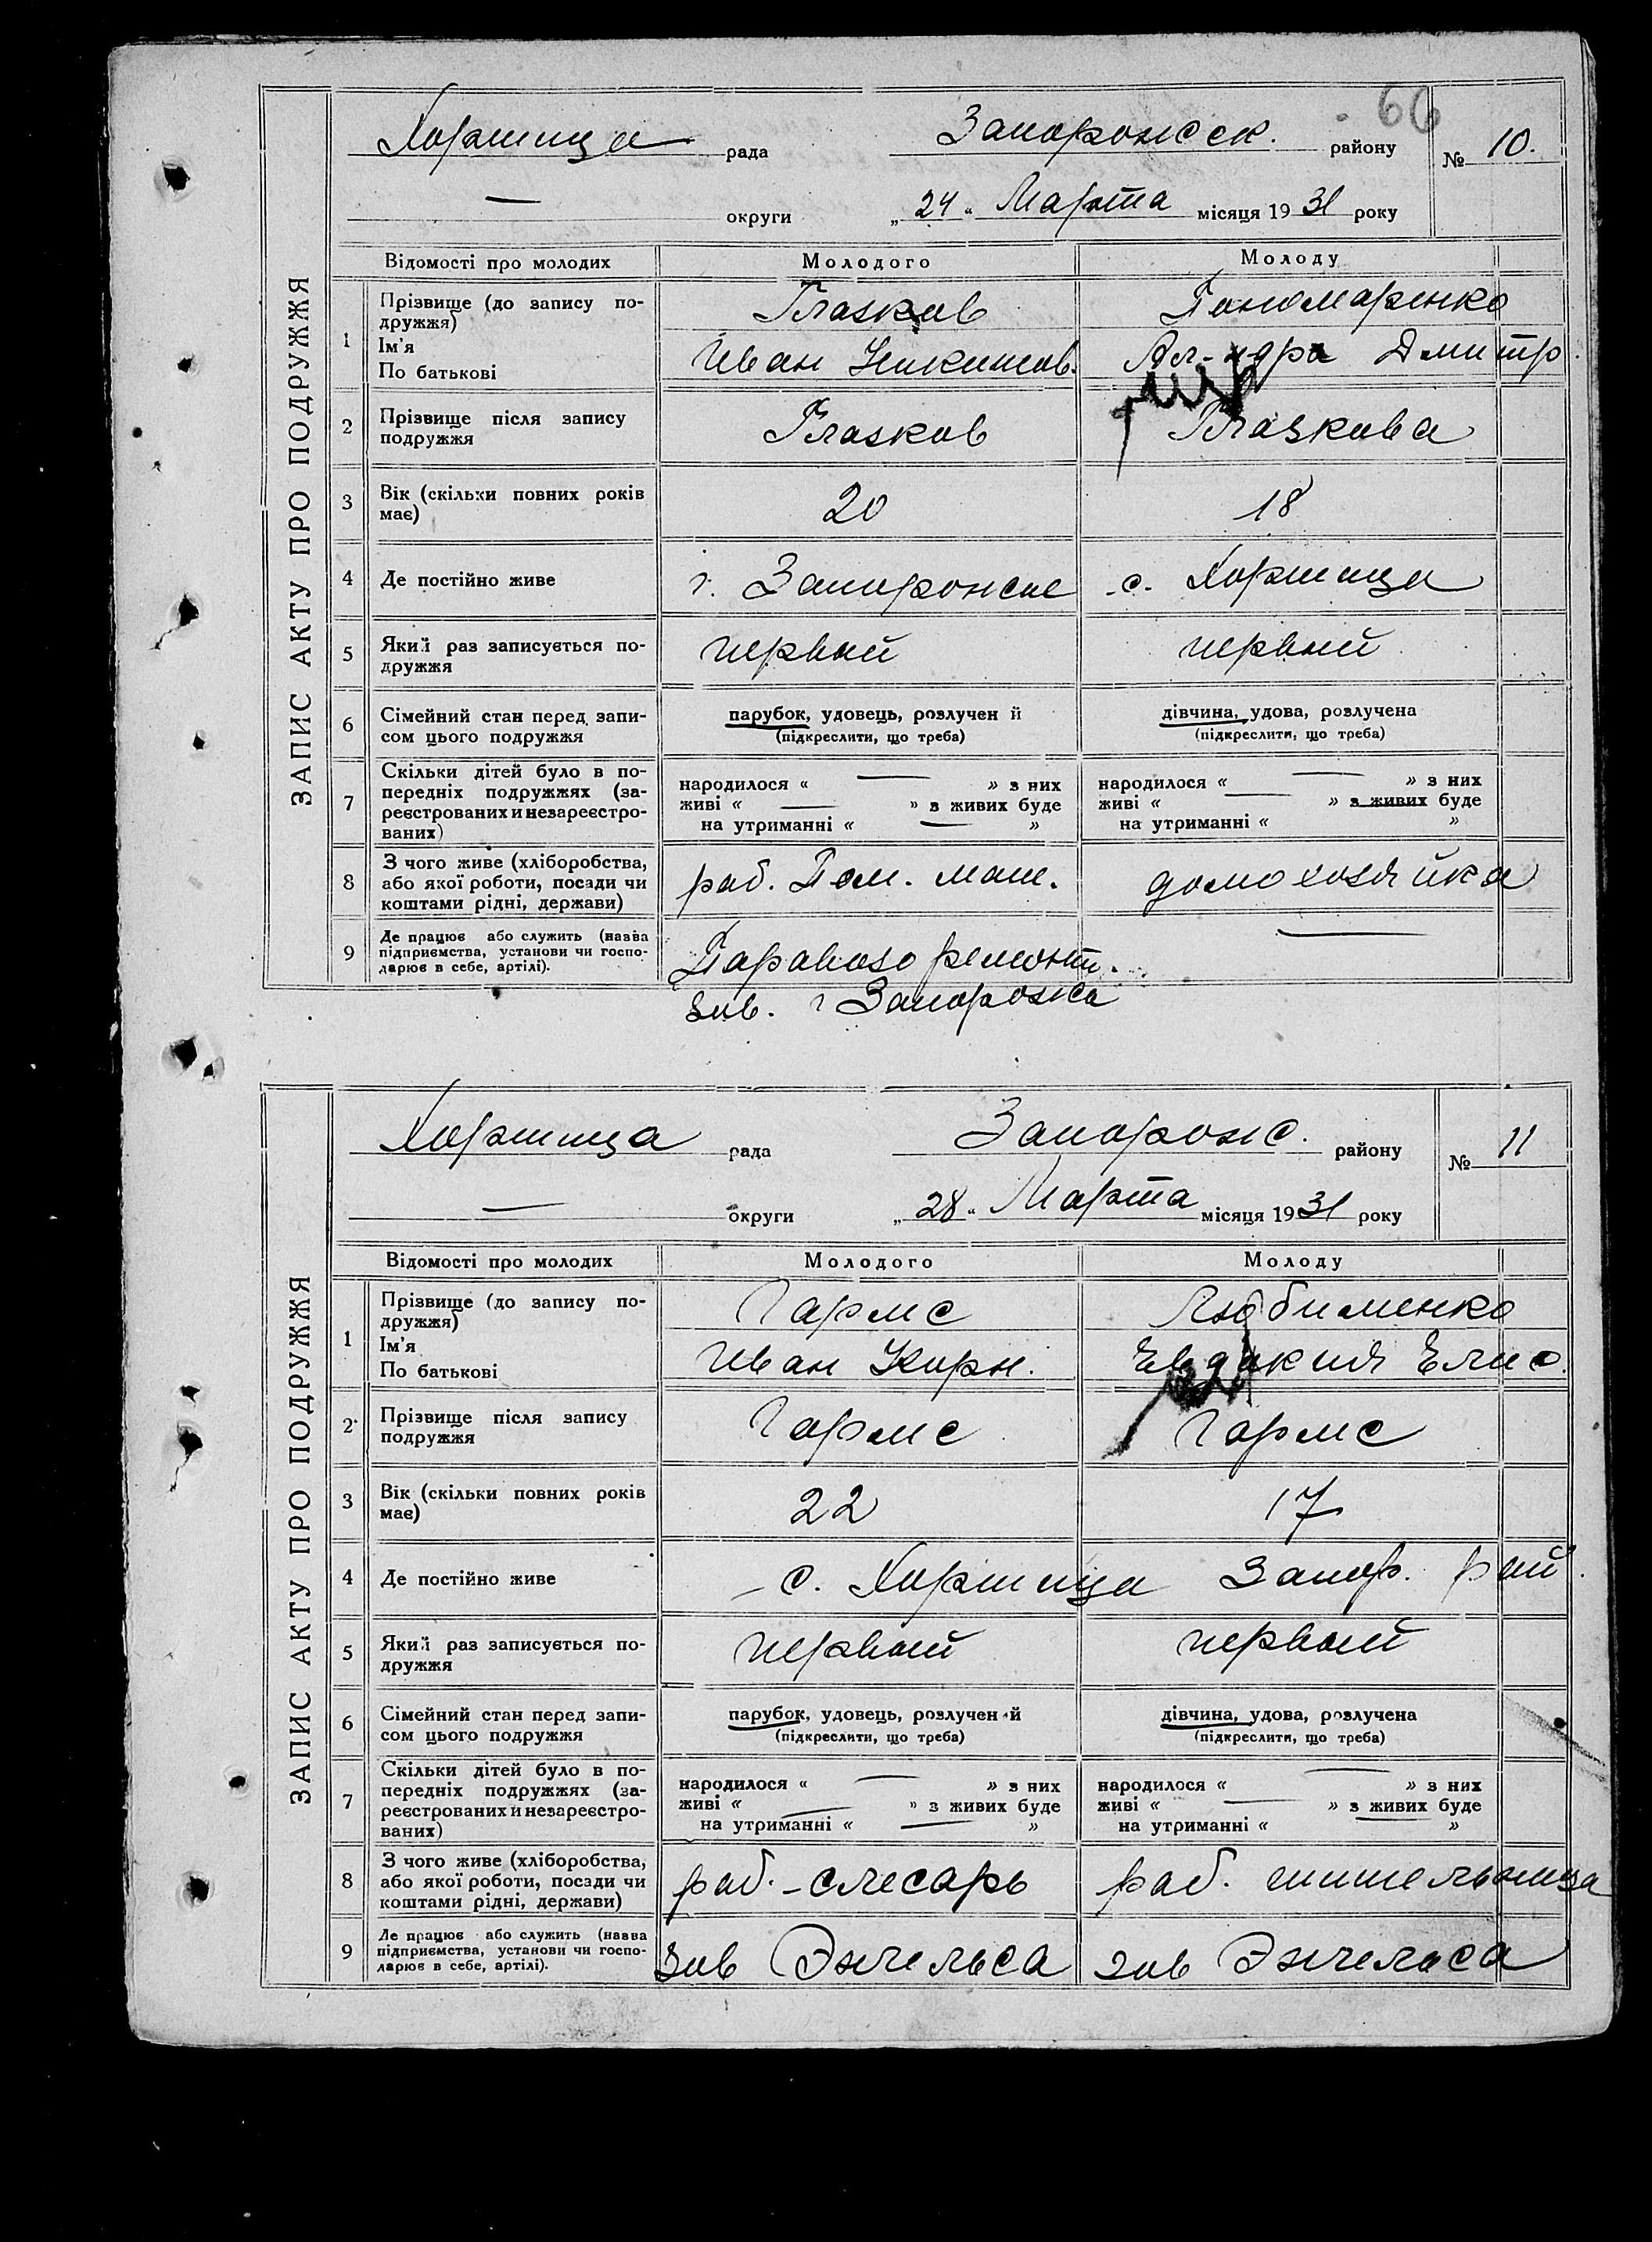 66
Хортица рада Запорожск. району № 10.
— округи „24“ Марта місяця 1931 року
ЗАПИС АКТУ ПРО ПОДРУЖЖЯ
Відомості про молодих Молодого Молоду
1 Прізвище (до запису по-
дружжя) Глазков Пономаренко
Ім'я
По батькові Иван Никитов. Ал-ндра Дмитр.
2 Прізвище після запису
подружжя Глазков Глазкова
3 Вік (скільки повних років
має) 20 18
4 Де постійно живе г. Запорожье с. Хортица
5 Який раз записується по-
дружжя первый первый
6 Сімейний стан перед запи-
сом цього подружжя парубок, удовець, розлучен й дівчина, удова, розлучена
(підкреслити, що треба) (підкреслити, що треба)
7 Скільки дітей було в по-
передніх подружжях (за-
реєстрованих и незареєстро-
ваних)
народилося « — » з них народилося « — » з них
живі « — » з живих буде живі « — » з живих буде
на утриманні « — » на утриманні « »
8 З чого живе (хліборобства,
або якої роботи, посади чи
коштами рідні, держави) раб. Пом. маш. домохозяйка
9 Де працює або служить (назва
підприємства, установи чи госпо-
дарює в себе, артілі). Паравозоремонтн. —
зав. г Запорожса
Хортица рада Запорож. району № 11
— округи „28“ Марта місяця 1931 року
ЗАПИС АКТУ ПРО ПОДРУЖЖЯ
Відомості про молодих Молодого Молоду
1 Прізвище (до запису по-
дружжя) Гармс Любименко
Ім'я
По батькові Иван Корн. Евдокия Елис.
2 Прізвище після запису
подружжя Гармс Гармс
3 Вік (скільки повних років
має) 22 17
4 Де постійно живе с. Хортица Запор. рай.
5 Який раз записується по-
дружжя первый первый
6 Сімейний стан перед запи-
сом цього подружжя парубок, удовець, розлучен й дівчина, удова, розлучена
(підкреслити, що треба) (підкреслити, що треба)
7 Скільки дітей було в по-
передніх подружжях (за-
реєстрованих и незареєстро-
ваних)
народилося « — » з них народилося « — » з них
живі « — » з живих буде живі « — » з живих буде
на утриманні « — » на утриманні « »
8 З чого живе (хліборобства,
або якої роботи, посади чи
коштами рідні, держави) раб.-слесарь раб.
9 Де працює або служить (назва
підприємства, установи чи госпо-
дарює в себе, артілі). зав Энгельса зав Энгельса